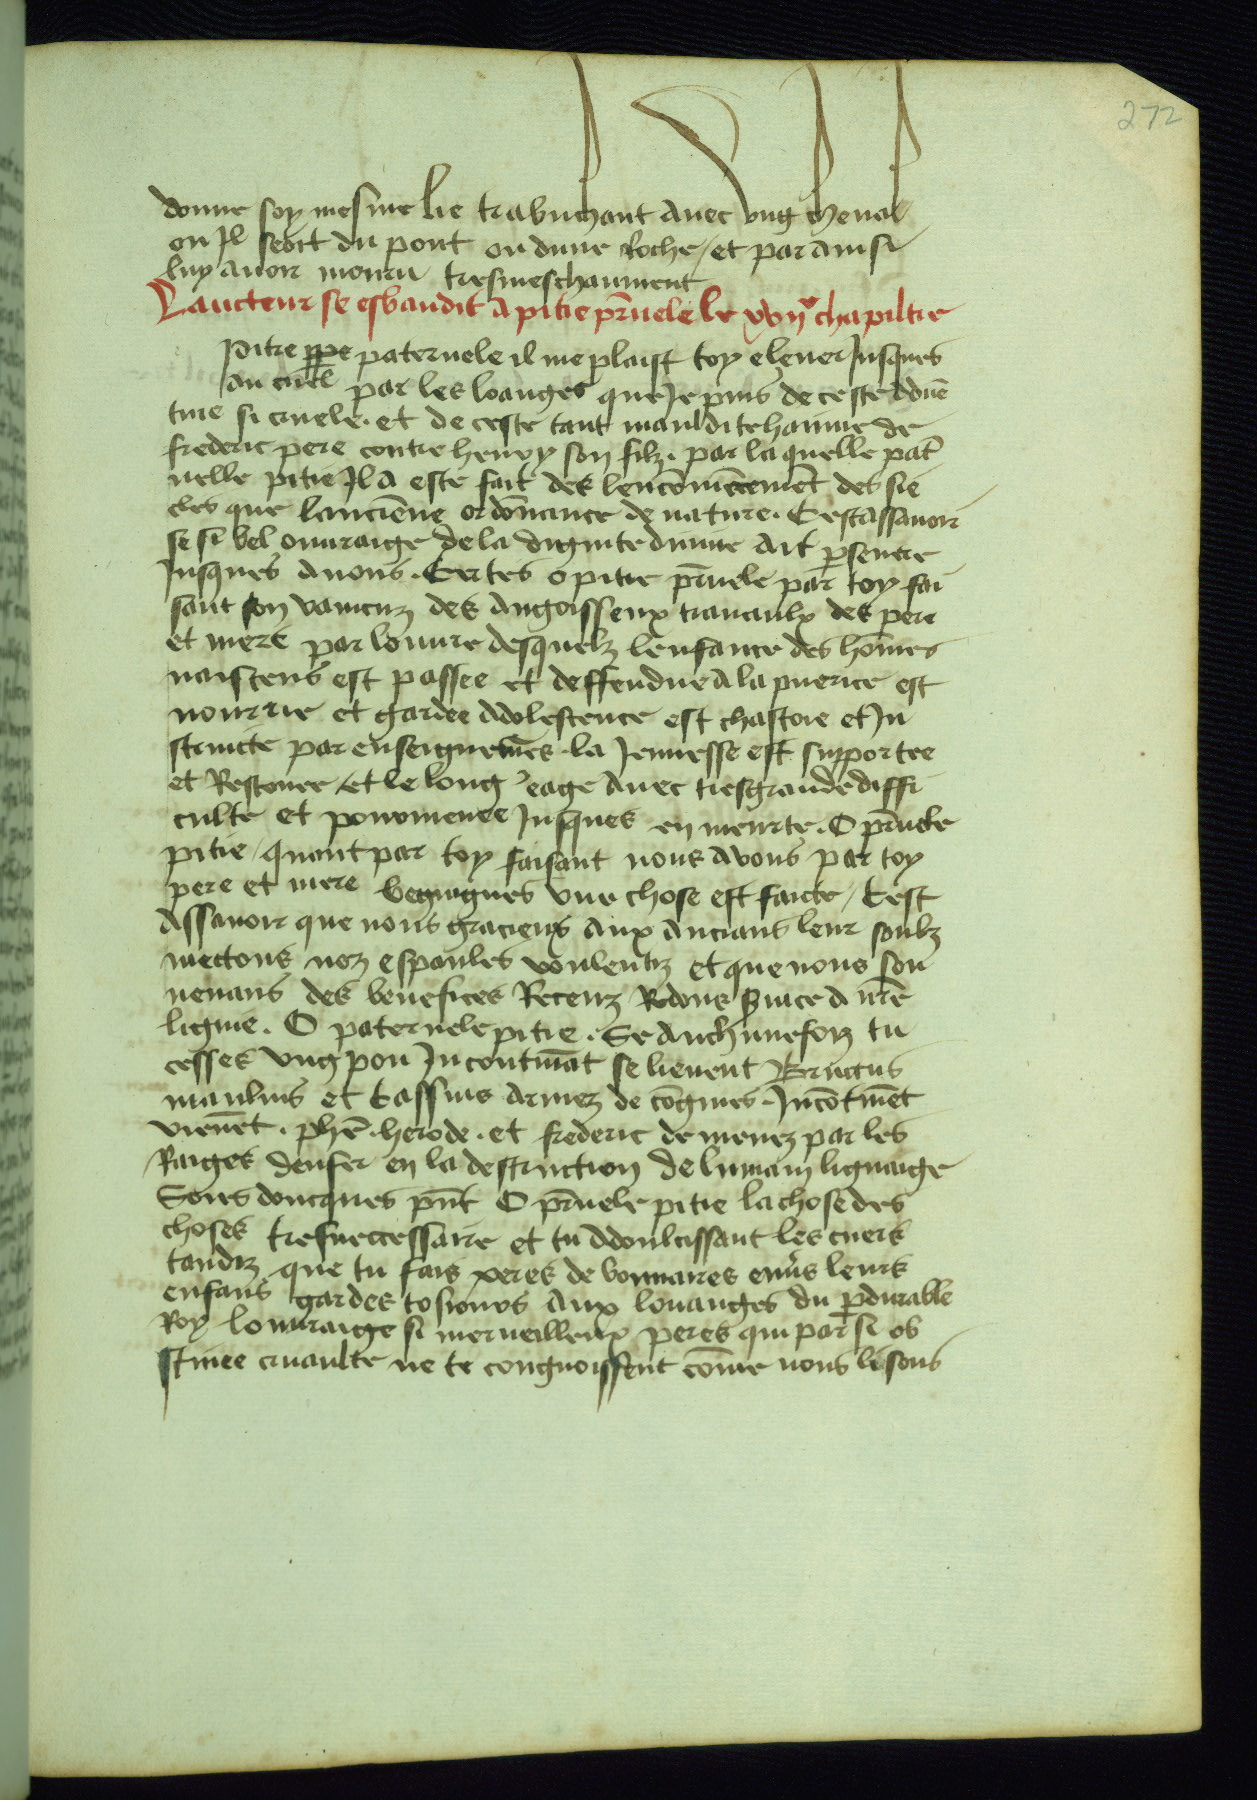 272
donne soy mesme lie trabuchant avec ung cheval
ou Il seoit du pont ou dune Roche / et par ainsi
luy avoir mouru tresmeschanment
Laucteur se esbaudit a pitie pr̄nele le xvijᵉ chapiltre
Pitie paternele il me plaist toy eslever Jusques
au ciel par les loanges que Je puis de ceste
tine si cruele. et de ceste tant mauldite hainne de
frederic pere contre henry son filz. par laquelle pat̄
nelle pitie Il a este fait des lencōmēcemēt des sie
cles que lanciēne ordōnance de nature. Cestassavoir
se si bel ouvraige de la dignite divine ait ꝑsevere
Jusques a nous. Certes o pitie pr̄nele par toy fai
sant son vaincuz des angoisseux travaulx des pere
et mere par leuvre desquelz lenfance des hōmes
naiscens est passee et deffendue a la puerice est
nourrie et gardee adolescence est chastoie et In
structe par enseignemēs. la Jennesse est supportee
et Restouee / et le long eage avec tresgrande diffi
culte et pourmenee Jusques en meurte. O pr̄nele
pitie / quant par toy faisant nous avons par toy
pere et mere benignes une chose est faicte / Cest
Assavoir que nous gracieux aux ancians leur soubz
mectons noz espaules voulentiz et que nous sou
venans des benefices Receuz Rēdons ... a nr̄e
lignie. O paternele pitie. Se aucūnefoiz tu
cesses ung pou Incontināt se lievent Bructus
manlius et Cassius armez de cōgnies. Incōtinēt
vienēt. phē. herode. et frederic demenez par les
Raiges denfer en la destruction de lumain lignaige
Soies doncques pn̄t O pr̄nele pitie la chose des
choses tresneccessaire et tu adoulcissant les cuers
tandiz que tu fais peres debonnaires env̄s leurs
enfans gardes tosiours aux louanges du ꝑdurable
Roy louvraige si merveilleux peres qui par si ob
stinee cruaulte ne te congnoissent cōme nous lisons